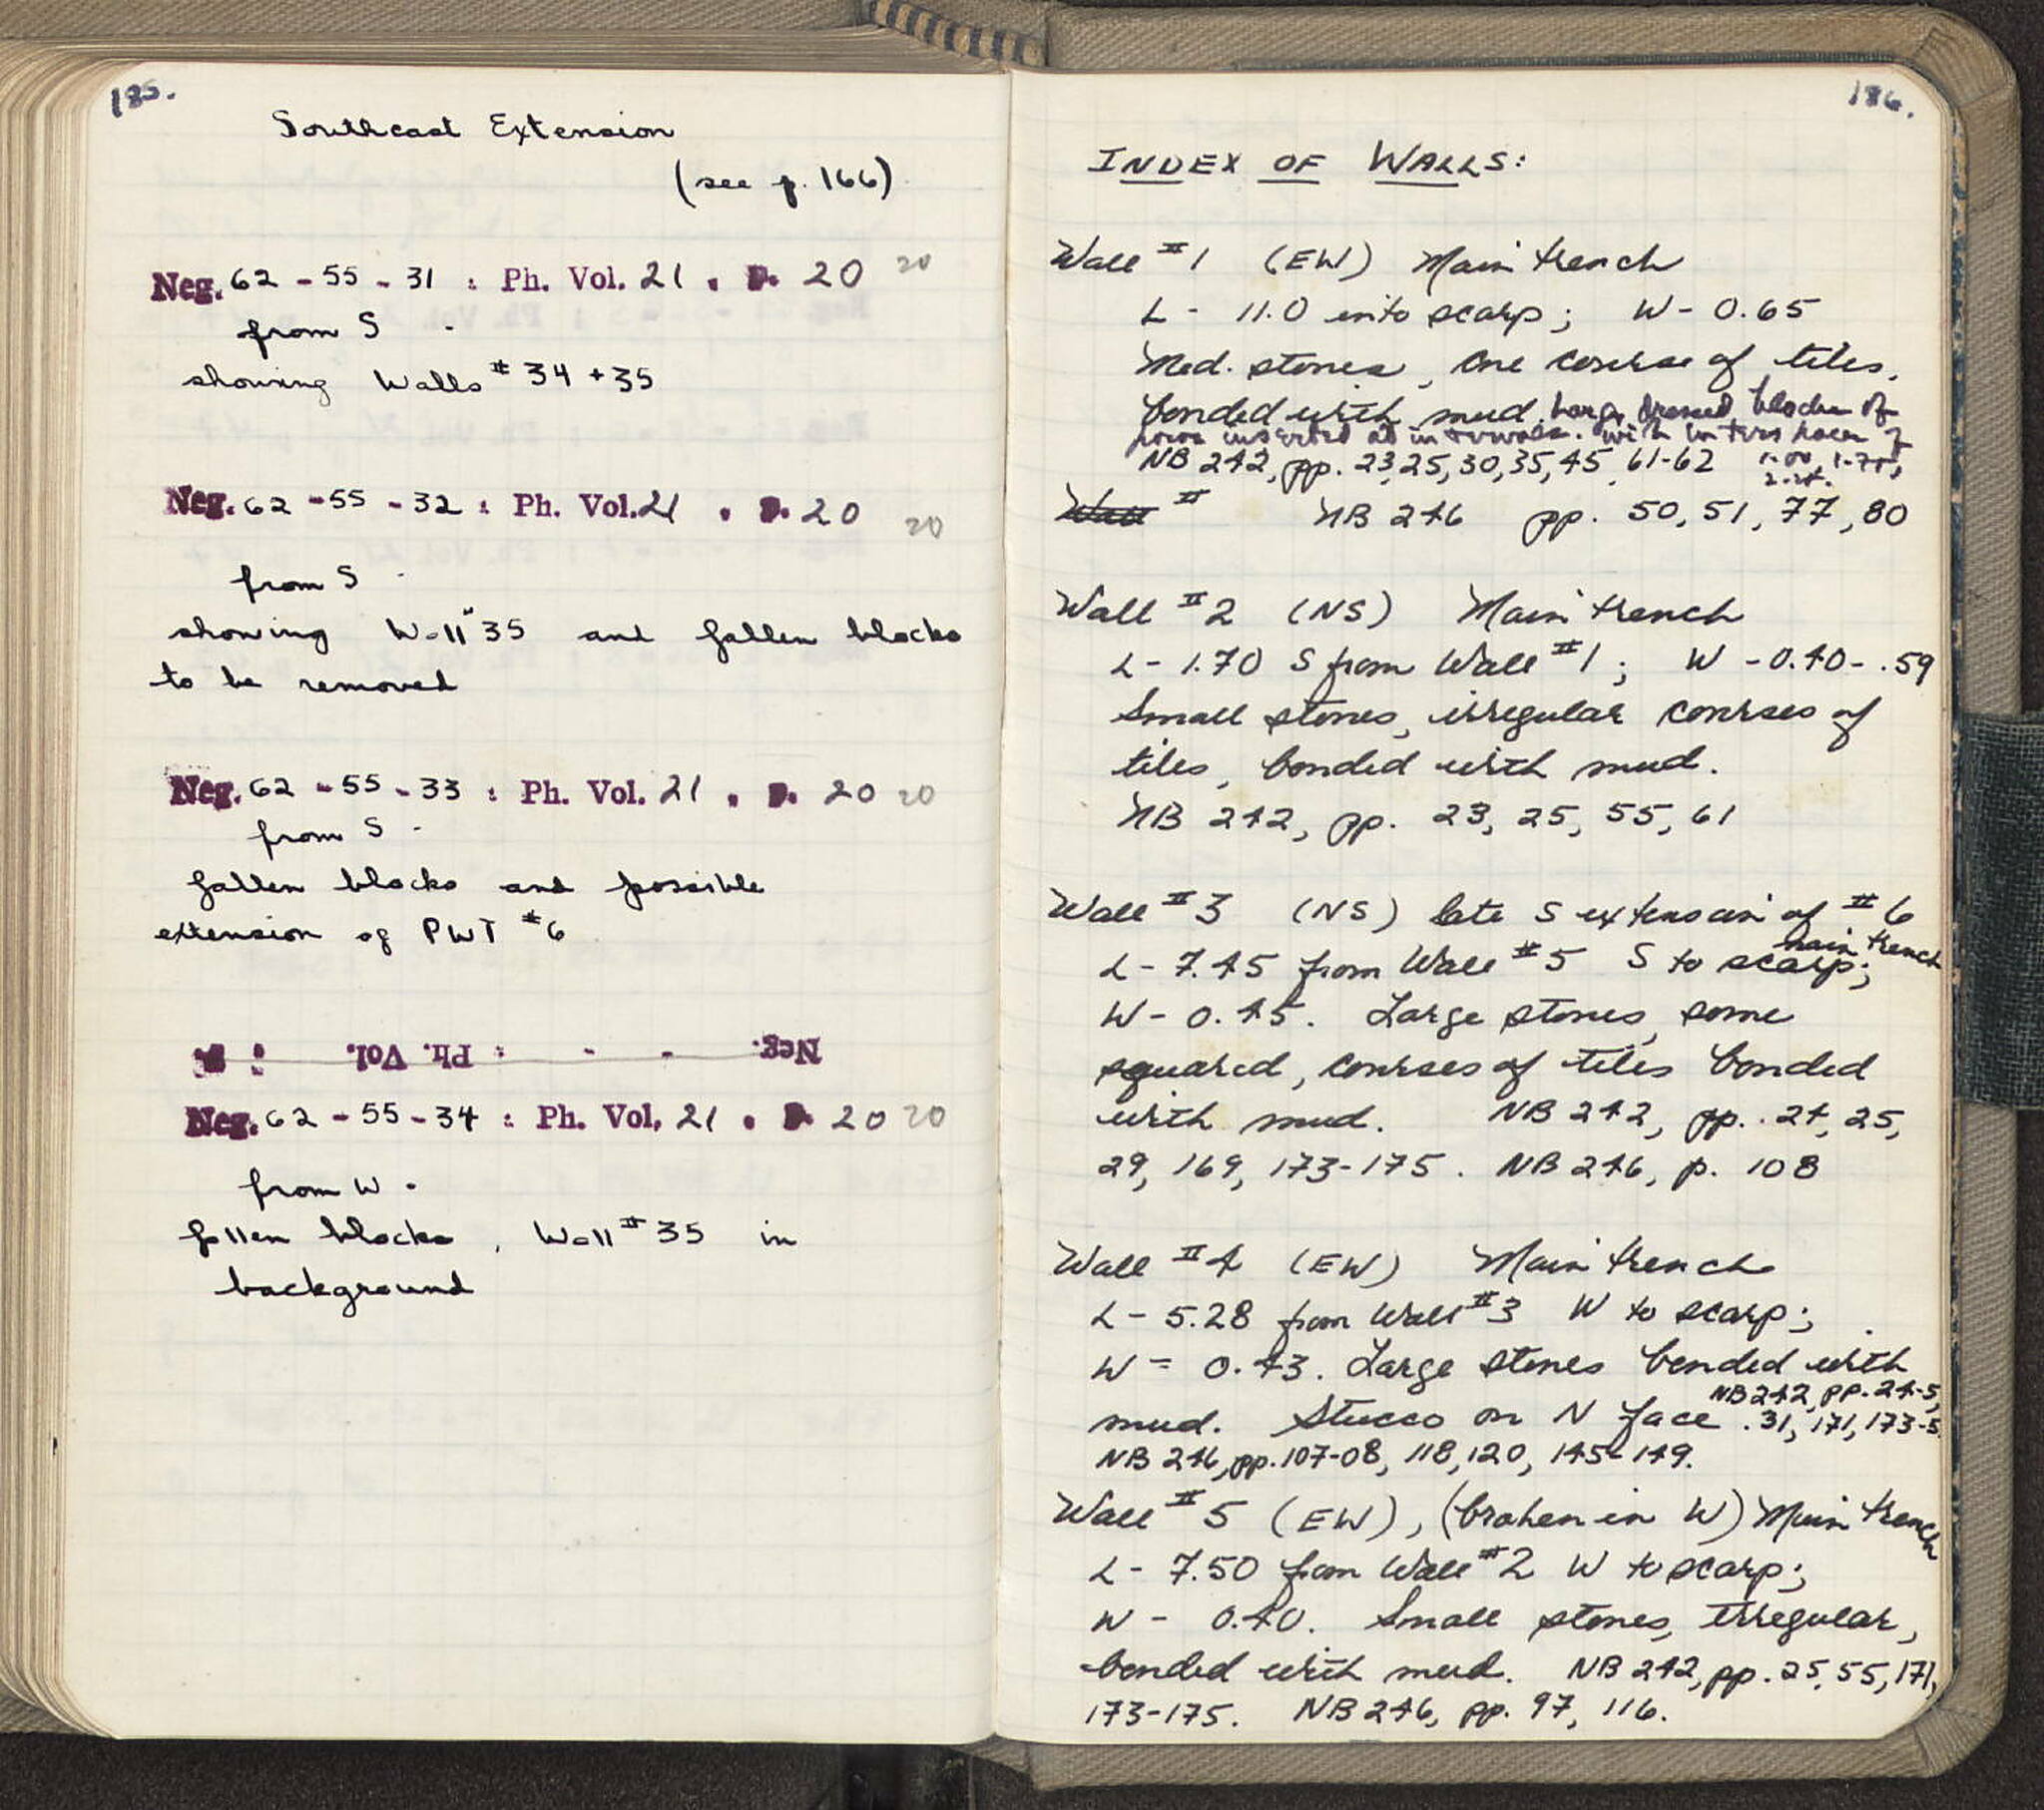 185.
Southeast Extension
(see p. 166)
Neg. 62 - 55 - 31 : Ph. Vol. 21 . p. 20 20
from S
showing Walls # 34 + 35
Neg. 62 - 55 - 32 : Ph. Vol. 21 . p. 20 20
from S
showing Wall # 35 and fallen blocks
to be removed
Neg. 62 - 55 - 33 : Ph. Vol. 21 . p. 20 20
from S
fallen blocks and possible
extension of PWT #6
Neg. - - : Ph. Vol. : p.
Neg. 62 - 55 - 34 : Ph. Vol. 21 . p. 20 20
from W.
fallen blocks, Wall # 35 in
background
186.
INDEX OF WALLS:
Wall #1 (EW) Main trench
L - 11.0 into scarp; W - 0.65
Med. stones, one course of tiles,
bonded with mud. Large dressed blocks of
poros inserted at intervals. with interspaces of
NB 242, pp. 23, 25, 30, 35, 45, 61-62 1.00, 1.75,
Wall # NB 246 pp. 50, 51, 77, 80
Wall #2 (NS) Main trench
L - 1.70 S from Wall #1; W - 0.40 - .59
Small stones, irregular courses of
tiles, bonded with mud.
NB 242, pp. 23, 25, 55, 61
Wall #3 (NS) late S extension of #6
main trench
L - 7.45 from Wall #5 S to scarp;
W - 0.45. Large stones, some
squared, courses of tiles bonded
with mud. NB 242, pp. 24, 25,
29, 169, 173-175. NB 246, p. 108
Wall #4 (EW) Main trench
L - 5.28 from Wall #3 W to scarp;
W = 0.43. Large stones bonded with
NB 242, pp. 24-5,
mud. Stucco on N face. 31, 171, 173-5
NB 246, pp. 107-08, 118, 120, 145-149.
Wall #5 (EW), (broken in W) Main trench
L - 7.50 from Wall #2 W to scarp;
W - 0.40. Small stones, irregular,
bonded with mud. NB 242, pp. 25, 55, 171,
173-175. NB 246, pp. 97, 116.